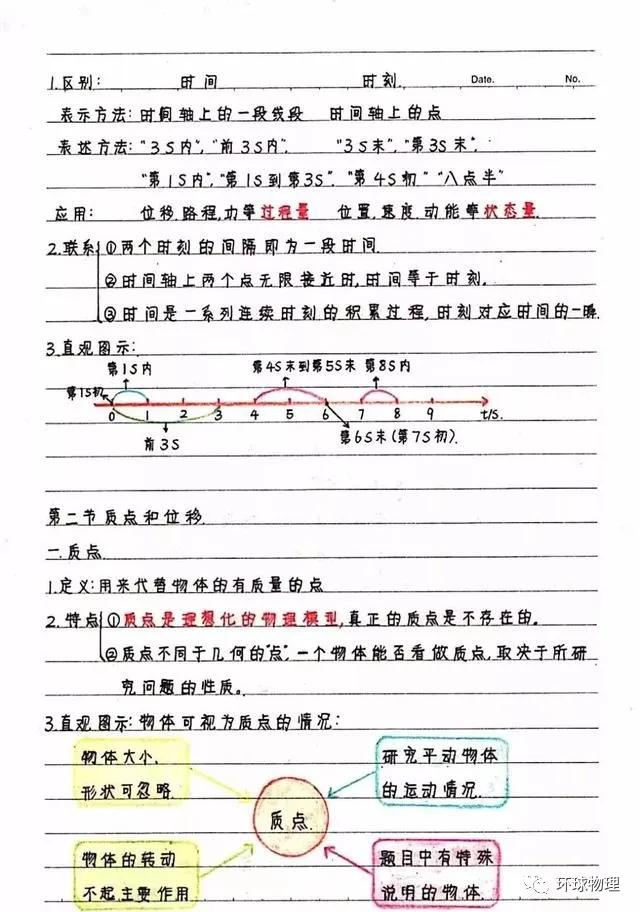 1.区别: 时间 时刻 Date. No.
表示方法:时间轴上的一段线段 时间轴上的点
表述方法:"3S内","前3S内", "3S末","第3S末",
"第1S内","第1S到第3S", "第4S初" "八点半"
应用: 位移.路程,力等过程量 位置,速度.动能等状态量.
2.联系 ①两个时刻的间隔即为一段时间.
②时间轴上两个点无限接近时,时间等于时刻.
③时间是一系列连续时刻的积累过程,时刻对应时间的一瞬.
3.直观图示:
第1S内 第4S末到第5S末 第8S内
第1S初
0 1 2 3 4 5 6 7 8 9 t/s.
前3S 第6S末(第7S初).
第二节质点和位移.
一.质点
1.定义:用来代替物体的有质量的点
2.特点 ①质点是理想化的物理模型,真正的质点是不存在的。
②质点不同于几何的"点",一个物体能否看做质点,取决于所研
究问题的性质。
3.直观图示:物体可视为质点的情况:
物体大小、
形状可忽略
研究平动物体
的运动情况.
质点.
物体的转动
不起主要作用
题目中有特殊
说明的物体.
环球物理